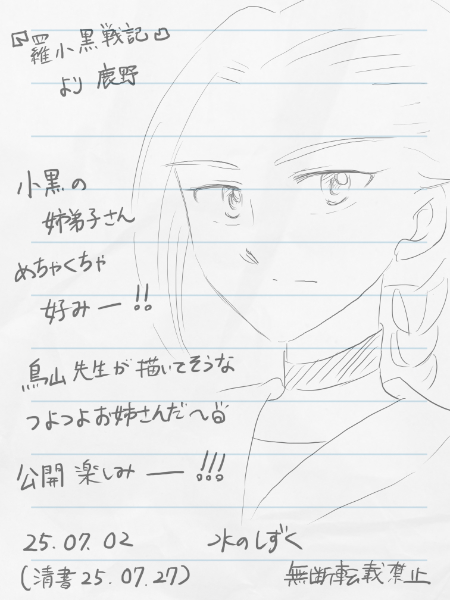 『羅小黒戦記』
より 鹿野
小黒の
姉弟子さん
めちゃくちゃ
好みー!!
鳥山先生が描いてそうな
つよつよお姉さんだ〜
公開楽しみ━!!!
25.07.02 水のしずく
(清書25.07.27) 無断転載禁止